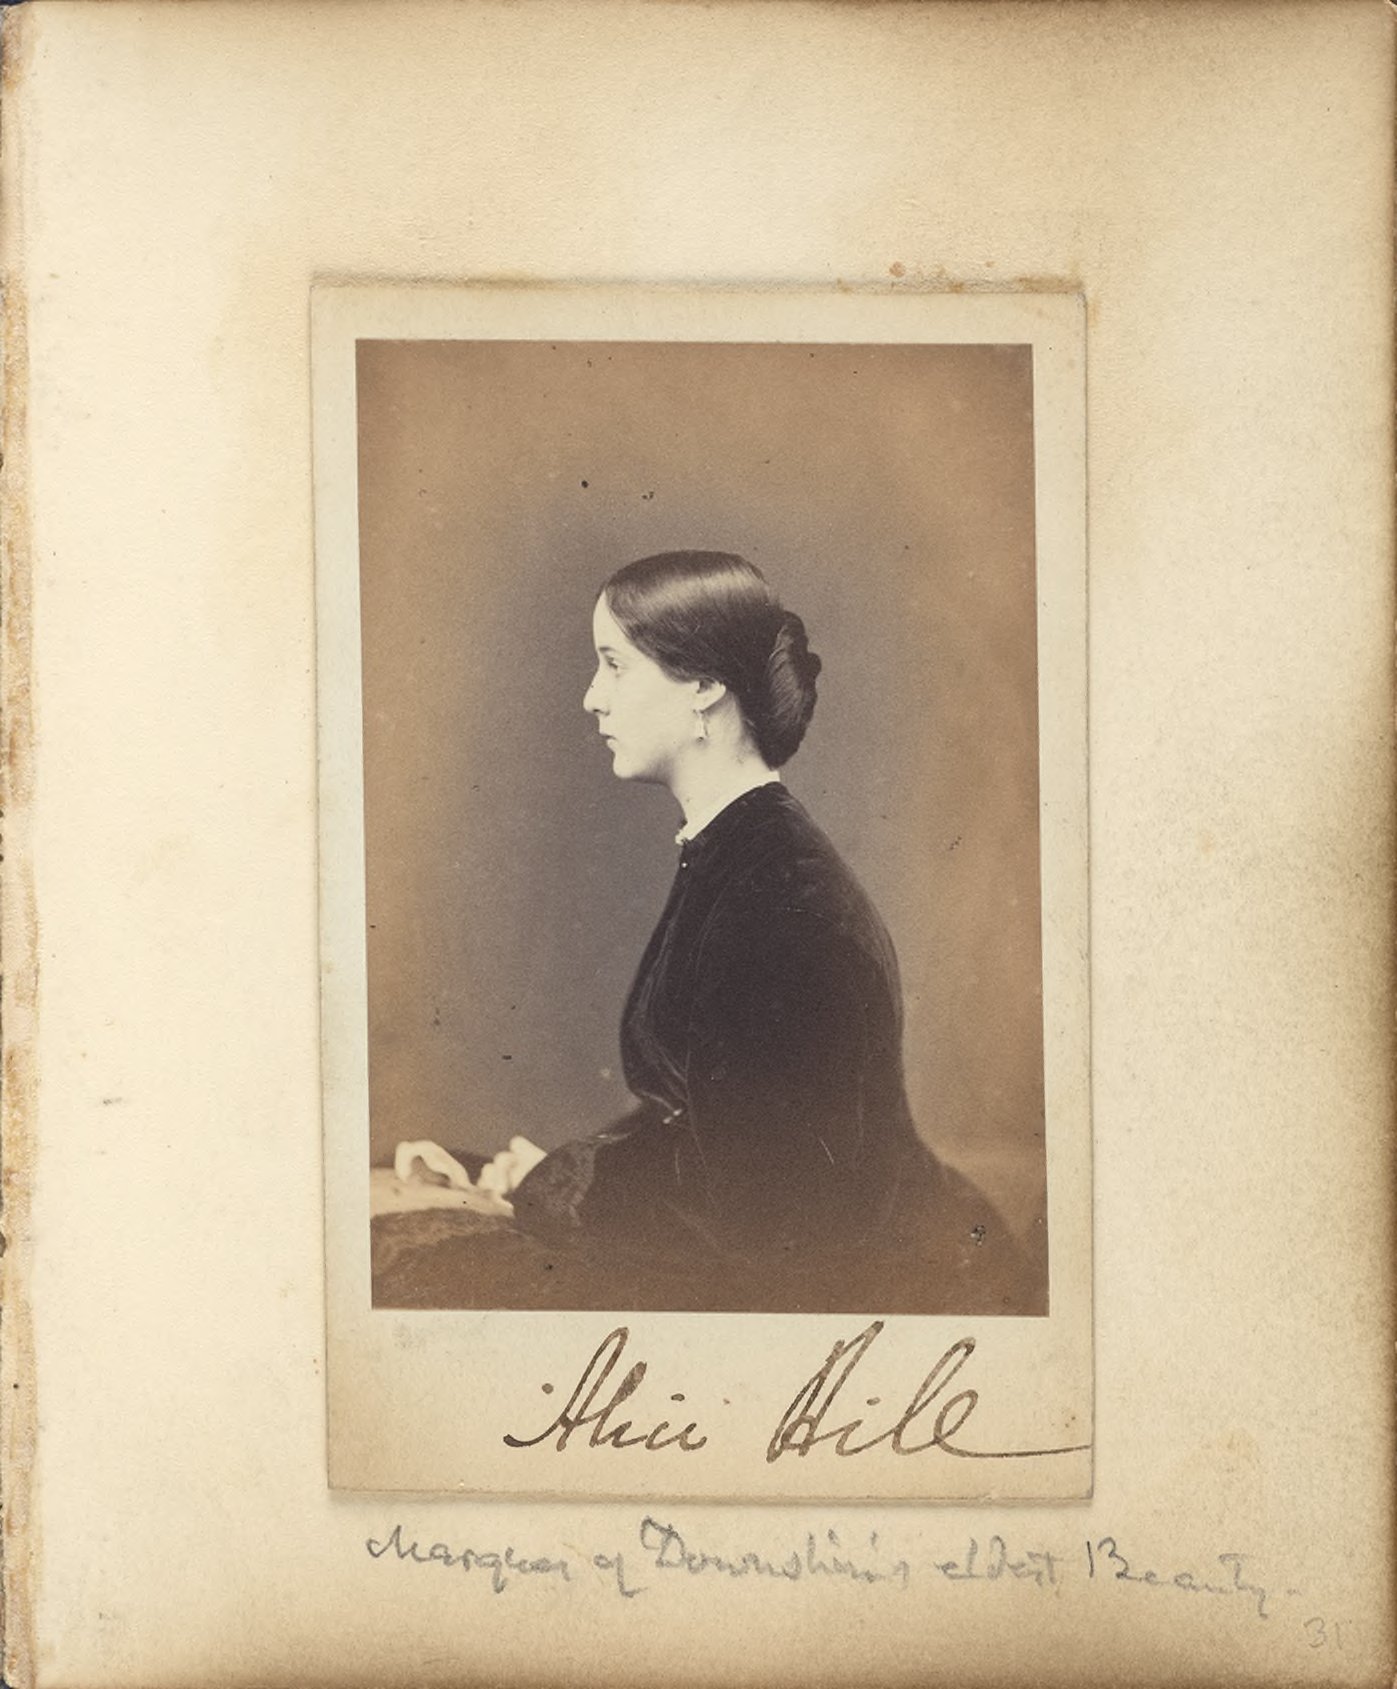 Alice Hill
Marquis of Downshire's eldest Beauty -
31